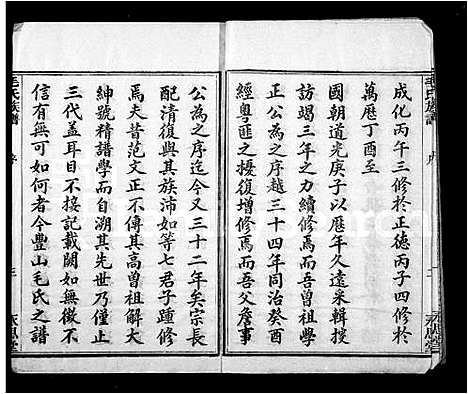 成化丙午三修於正德丙子四修於
萬厯丁酉至
國朝道光庚子以厯年久遠采輯搜
訪竭三年之力續修焉而吾曾祖學
正公為之序越三十四年同治癸酉
經粵匪之擾復增修焉而吾父詹事
公為之序迄今又三十二年矣宗長
配清復與其族沛如等七君子踵修
焉夫昔范文正不傳其高曾祖解大
紳號精譜學而自溯其先世乃僅止
三代蓋耳目不接記載闕如無徵不
信有無可如何者今豐山毛氏之譜
毛氏族譜
序
三
永思堂